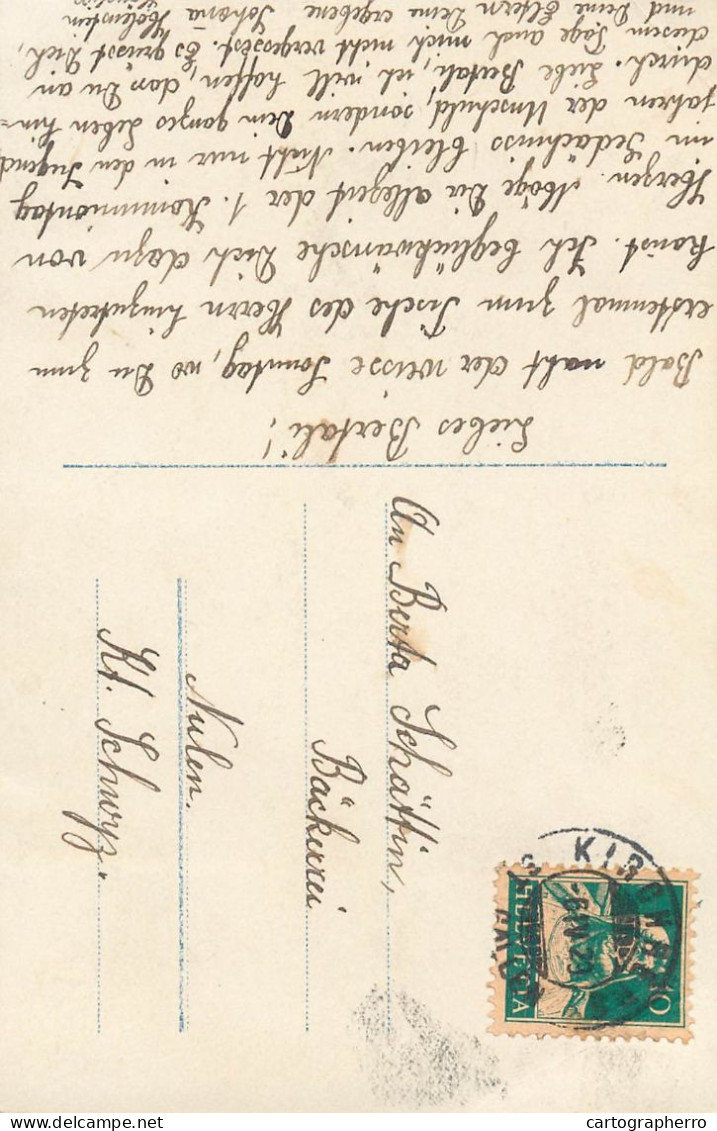 Liebes Bertali!
Bald naht der weisse Sonntag, wo Du zum
erstenmal zum Tische des Herrn hinzutreten
kannst. Ich beglückwünsche Dich dazu von
Herzen. Möge Dir allezeit der 1. Kommuniontag
im Gedächniss bleiben. Nicht nur in den Jugend
jahren der Unschuld, sondern Dein ganzes Leben hin-
durch. Liebe Bertali, ich will hoffen, das Du an
diesem Tage auch mich nicht vergessest. Es grüsst Dich,
und Deine Eltern Deine ergebene Johana
An Berta Schättin,
Bäckerei
Nulen.
Kt. Schwyz.
HELVETIA
10
cartographerro